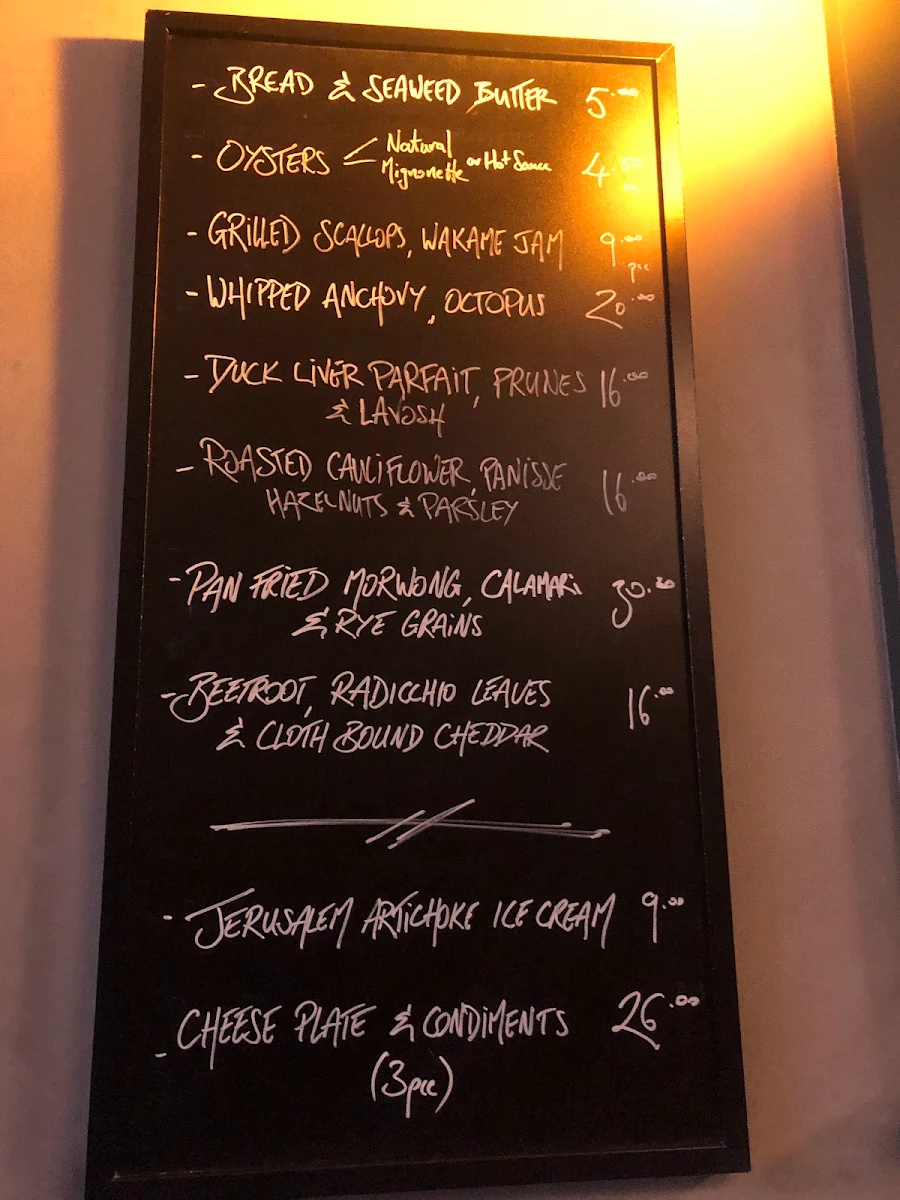 - BREAD & SEAWEED BUTTER 5.00
- OYSTERS < Natural
Mignonette or Hot Sauce 4.50
- GRILLED SCALLOPS, WAKAME JAM 9.00
pce
- WHIPPED ANCHOVY, OCTOPUS 20.00
- DUCK LIVER PARFAIT, PRUNES 16.00
& LAVOSH
- ROASTED CAULIFLOWER, PANISSE
HAZELNUTS & PARSLEY 16.00
- PAN FRIED MORWONG, CALAMARI 30.00
& RYE GRAINS
- BEETROOT, RADICCHIO LEAVES 16.00
& CLOTH BOUND CHEDDAR
- JERUSALEM ARTICHOKE ICE CREAM 9.00
- CHEESE PLATE & CONDIMENTS 26.00
(3pce)